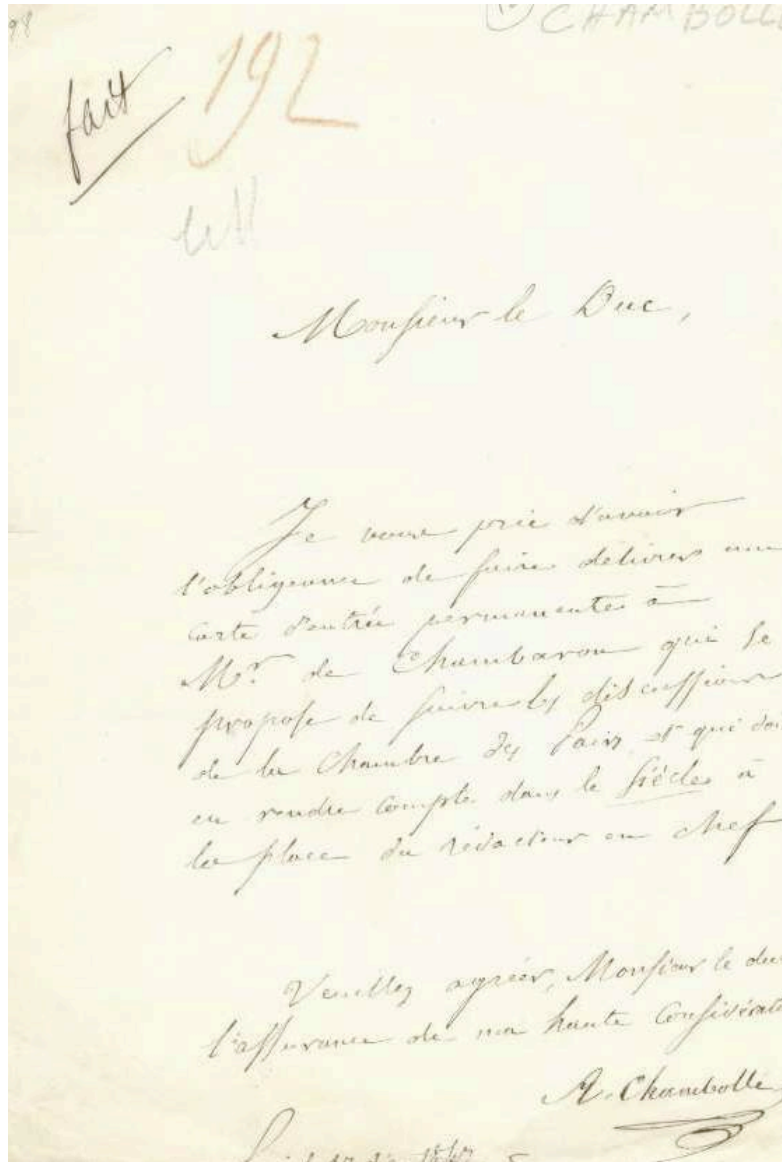 98
CHAMBOLLE
fait
192
Monsieur le Duc,
Je vous prie d'avoir
l'obligeance de faire délivrer une
carte d'entrée permanente à
Mr. de Chambaron qui se
propose de suivre les discussions
de la Chambre des Pairs et qui doi
en rendre compte dans le Siècle à
la place du rédacteur en chef
Veuillez agréer, Monsieur le duc
l'assurance de ma haute considérat
A. Chambolle